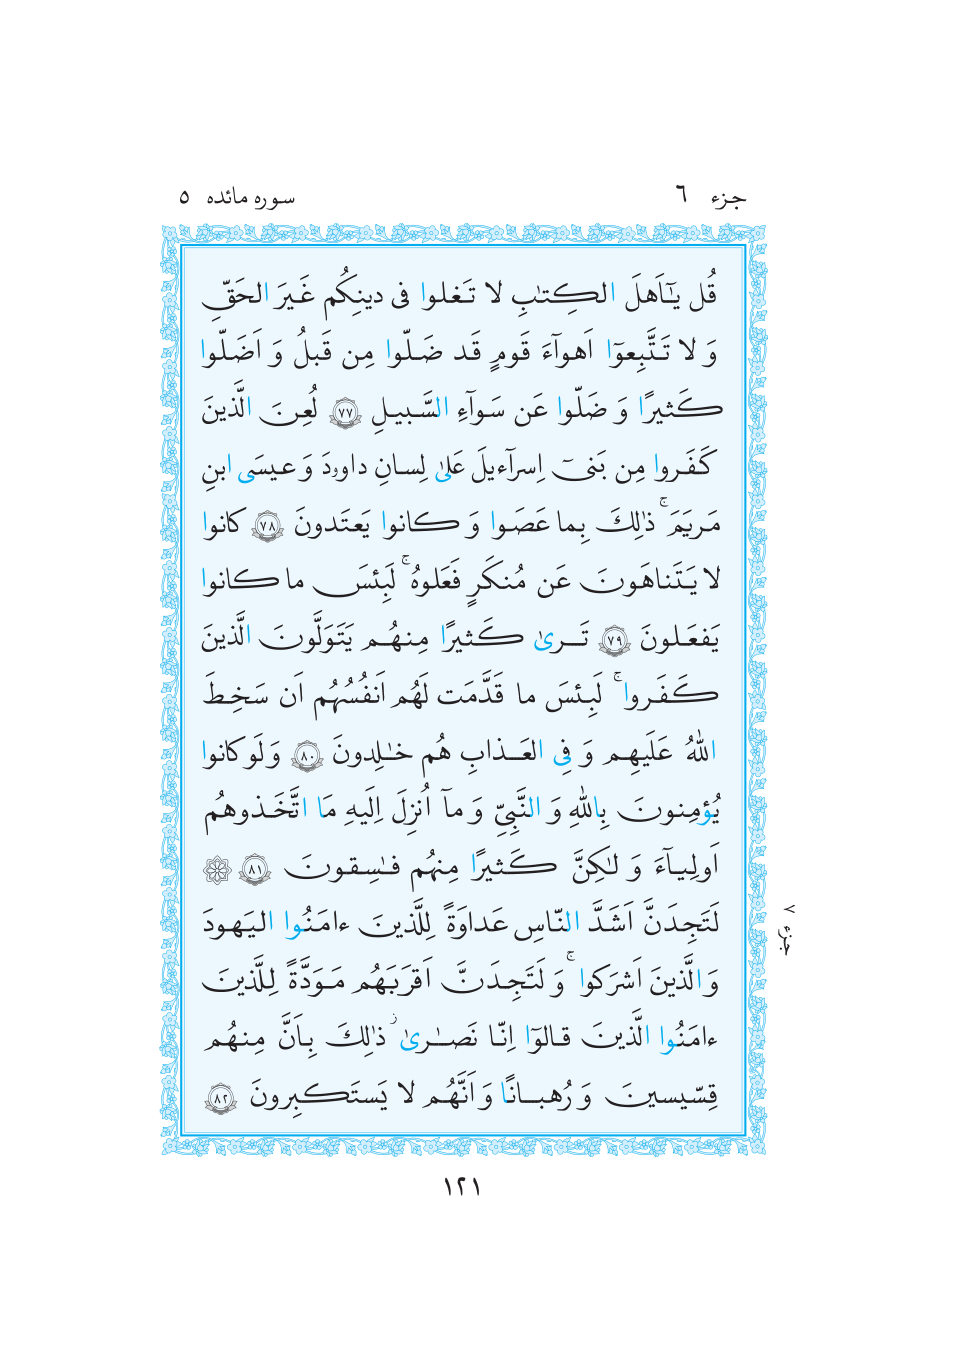 جزء ٦ سوره مائده ٥
قُل يـٰٓاَهلَ الكِتـٰبِ لا تَغلوا فى دينِكُم غَيرَ الحَقِّ
وَ لا تَتَّبِعوٓا اَهوآءَ قَومٍ قَد ضَلّوا مِن قَبلُ وَ اَضَلّوا
كَثيرًا وَ ضَلّوا عَن سَوآءِ السَّبيلِ ﴿٧٧﴾ لُعِنَ الَّذينَ
كَفَروا مِن بَنىٓ اِسرآءيلَ عَلىٰ لِسانِ داووۥدَ وَ عيسَى ابنِ
مَريَمَ ۚ ذٰلِكَ بِما عَصَوا وَ كانوا يَعتَدونَ ﴿٧٨﴾ كانوا
لا يَتَناهَونَ عَن مُنكَرٍ فَعَلوهُ ۚ لَبِئسَ ما كانوا
يَفعَلونَ ﴿٧٩﴾ تَرىٰ كَثيرًا مِنهُم يَتَوَلَّونَ الَّذينَ
كَفَروا ۚ لَبِئسَ ما قَدَّمَت لَهُم اَنفُسُهُم اَن سَخِطَ
اللّٰهُ عَلَيهِم وَ فِى العَذابِ هُم خـٰلِدونَ ﴿٨٠﴾ وَ لَو كانوا
يُؤمِنونَ بِاللّٰهِ وَ النَّبِىِّ وَ مآ اُنزِلَ اِلَيهِ مَا اتَّخَذوهُم
اَولِيآءَ وَ لـٰكِنَّ كَثيرًا مِنهُم فـٰسِقونَ ﴿٨١﴾
لَتَجِدَنَّ اَشَدَّ النّاسِ عَداوَةً لِلَّذينَ ءامَنُوا اليَهودَ
وَ الَّذينَ اَشرَكوا ۚ وَ لَتَجِدَنَّ اَقرَبَهُم مَوَدَّةً لِلَّذينَ
ءامَنُوا الَّذينَ قالوٓا اِنّا نَصـٰرىٰ ۚ ذٰلِكَ بِاَنَّ مِنهُم
قِسّيسينَ وَ رُهبانًا وَ اَنَّهُم لا يَستَكبِرونَ ﴿٨٢﴾
جزء ٧
١٢١